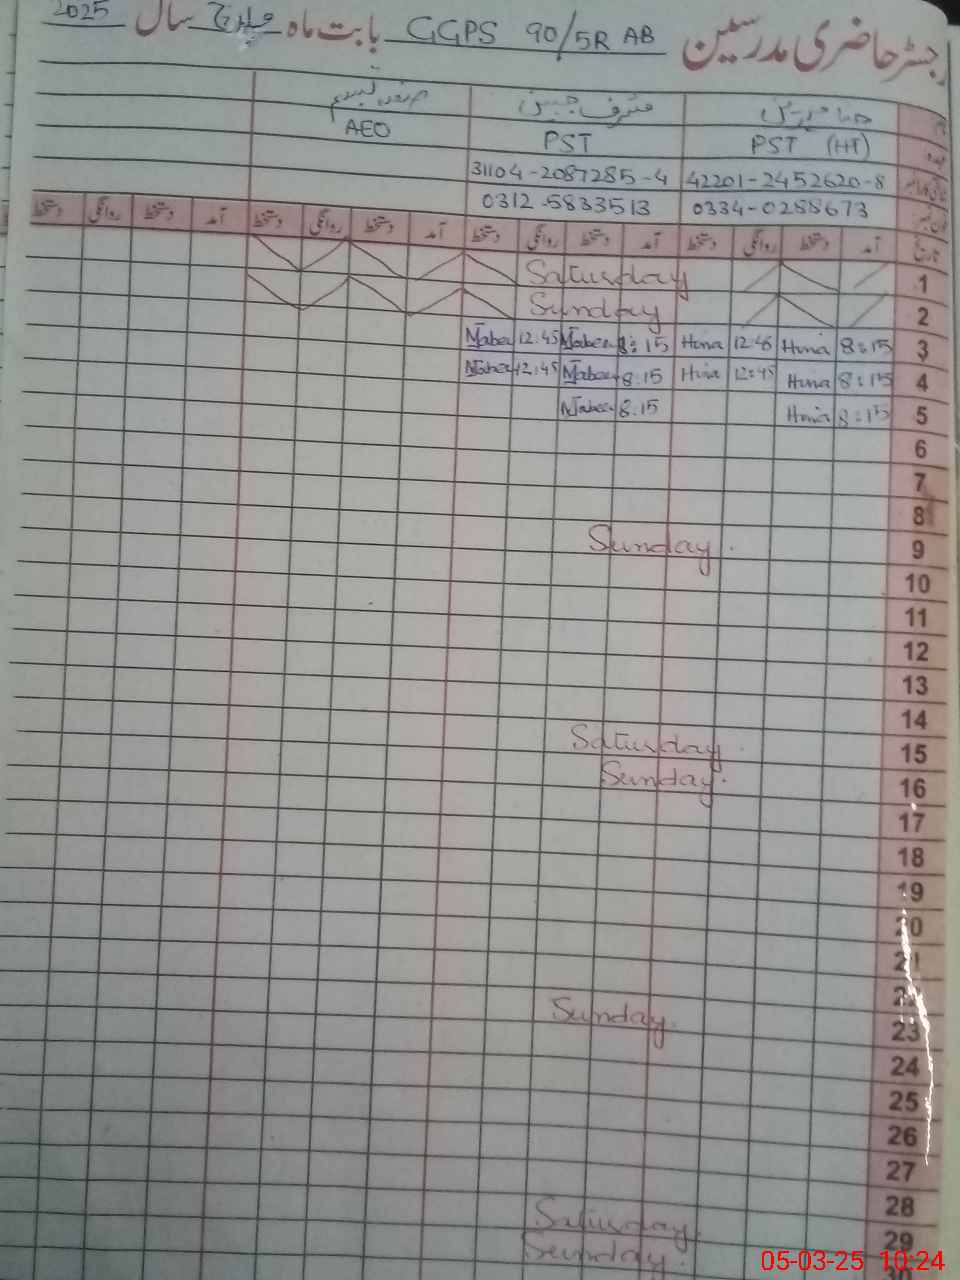 رجسٹر حاضری مدرسین GGPS 90/5R AB بابت ماہ مارچ سال 2025
PST (HT) PST AEO
42201-2452620-8 31104-2087285-4
0334-0288673 0312-5833513
تاریخ آمد دستخط روانگی دستخط آمد دستخط روانگی دستخط آمد دستخط روانگی دستخط آمد دستخط روانگی دستخط
1 Saturday
2 Sunday
3 8:15 Hina 12:45 Hina 8:15 Mabeen 12:45 Mabeen
4 8:15 Hina 12:45 Hina 8:15 Mabeen 12:45 Mabeen
5 8:15 Hina 8:15 Mabeen
6
7
8
9 Sunday.
10
11
12
13
14
15 Saturday
16 Sunday.
17
18
19
20
21
22
23 Sunday.
24
25
26
27
28
29 Saturday
30 Sunday.
05-03-25 10:24